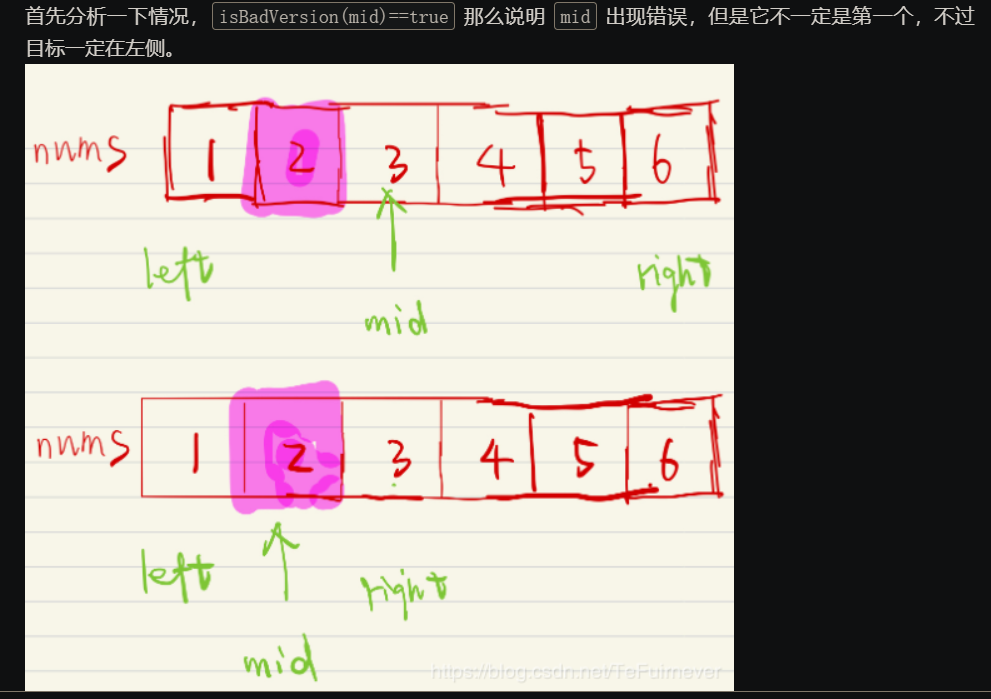 首先分析一下情况， isBadVersion(mid)==true 那么说明 mid 出现错误，但是它不一定是第一个，不过
目标一定在左侧。
nums 1 2 3 4 5 6
left right
mid
nums 1 2 3 4 5 6
left right
mid
https://blog.csdn.net/TeFuirnever